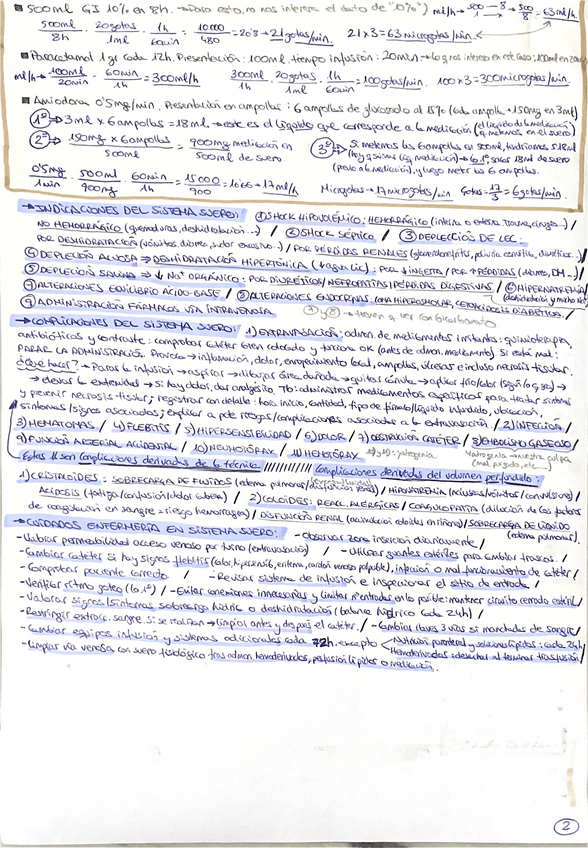 ■ 500ml GS 10% en 8h. → Para esto, no nos interesa el dato de "10%") ml/h → 500/8 = 63ml/h
500ml/8h · 20gotas/1ml · 1h/60min = 10000/480 = 20'8 → 21gotas/min. 21x3 = 63 microgotas/min.
■ Paracetamol 1gr cada 12h. Presentación: 100ml. tiempo infusión: 20min
ml/h → 100ml/20min · 60min/1h = 300ml/h 100ml · 20gotas/1ml · 1h/60min = 100gotas/min. 100x3 = 300microgotas/min.
■ Amiodarona 0'5mg/min. Presentación en ampollas: 6 ampollas de glucosado al (cada ampolla → 150mg en 3ml)
1º ⇒ 3ml x 6ampollas = 18ml → este es el líquido que corresponde a la medicación
2º ⇒ 150mg x 6ampollas/500ml = 900mg medicación en 500ml de suero. 3º ⇒ Si metemos las 6 ampollas en 500ml, tendríamos 518ml
0'5mg/1min · 500ml/900mg · 60min/1h = 15000/900 = 16'66 → 17ml/h Microgotas → 17microgotas/min Gotas = 17/3 = 6gotas/min.
→ INDICACIONES DEL SISTEMA SUERO: 1) SHOCK HIPOVOLÉMICO: HEMORRÁGICO (interna o externa Trauma, cirugía...) /
NO HEMORRÁGICO (quemaduras, deshidratación...) / 2) SHOCK SÉPTICO / 3) DEPLECCIÓN DE LEC:
POR DESHIDRATACIÓN (vómitos, diarrea, sudor excesivo...) / POR PÉRDIDAS RENALES
4) DEPLECIÓN ACUOSA ⇒ DESHIDRATACIÓN HIPERTÓNICA: por ↓INGESTA / POR ↑PÉRDIDAS
5) DEPLECIÓN SALINA ⇒ ↓ Na⁺ ORGÁNICO: POR DIURÉTICOS / NEFROPATÍAS / PÉRDIDAS DIGESTIVAS / 6) HIPERNATREMIA
7) ALTERACIONES EQUILIBRIO ÁCIDO-BASE / 8) ALTERACIONES ENDOCRINAS: COMA HIPEROSMOLAR, CETOACIDOSIS DIABÉTICA. /
9) ADMINISTRACIÓN FÁRMACOS VÍA INTRAVENOSA 7 y 8 → tienen q ver con bicarbonato
→ COMPLICACIONES DEL SISTEMA SUERO: 1) EXTRAVASACIÓN: admon. de medicamentos irritantes: quimioterapia,
antibióticos y contraste: comprobar catéter bien colocado y funciona OK (antes de admon. medicamento) Si está mal:
PARAR LA ADMINISTRACIÓN. Provoca → inflamación, dolor, enrojecimiento local, ampollas, úlceras e incluso necrosis tisular.
¿Qué hacer? → Paras la infusión → aspirar → dibujar área dañada → quitar cánula → aplicar frío/calor (según lo q sea) →
→ elevar la extremidad → si hay dolor, dar analgésico. Tb: administrar medicamentos específicos para tratar síntomas
y prevenir necrosis tisular; registrar con detalle: hora inicio, cantidad, tipo de fármaco/líquido infundido, ubicación,
síntomas/signos asociados; explicar a pcte riesgos/complicaciones asociadas a la extravasación / 2) INFECCIÓN /
3) HEMATOMAS / 4) FLEBITIS / 5) HIPERSENSIBILIDAD / 6) DOLOR / 7) OBSTRUCCIÓN CATÉTER / 8) EMBOLISMO GASEOSO /
9) PUNCIÓN ARTERIAL ACCIDENTAL / 10) NEUMOTÓRAX / 11) HEMOTÓRAX
Estas 11 son complicaciones derivadas de la técnica ////////// complicaciones derivadas del volumen perfundido:
1) CRISTALOIDES: SOBRECARGA DE FLUIDOS (edema pulmonar/disfunción renal) / HIPONATREMIA (náuseas/vómitos/convulsiones) /
ACIDOSIS (fatiga/confusión/dolor cabeza) / 2) COLOIDES: REACC. ALÉRGICAS / COAGULOPATÍA (dilución de los factores
de coagulación en sangre = riesgo hemorragias) / DISFUNCIÓN RENAL (acumulación coloides en riñones) / SOBRECARGA DE LÍQUIDO
(edema pulmonar).
→ CUIDADOS ENFERMERÍA EN SISTEMA SUERO: - Observar zona inserción diariamente /
- Valorar permeabilidad acceso venoso por turno (extravasación) / - Utilizar guantes estériles para cambiar
- Cambiar catéter si hay signos flebitis (calor, eritema, cordón venoso palpable), infección o mal funcionamiento de catéter /
- Comprobar paciente correcto / - Revisar sistema de infusión e inspeccionar el sitio de entrada /
- Verificar ritmo goteo / - Evitar conexiones innecesarias y limitar nº entradas en lo posible: mantener circuito cerrado estéril /
- Valorar signos/síntomas sobrecarga hídrica o deshidratación (balance hídrico cada 24h) /
- Restringir extracc. sangre. Si se realizan → limpiar antes y después el catéter. / - Cambiar llaves 3 vías si manchadas de sangre /
- Cambiar equipos infusión y sistemas adicionales cada 72h, excepto Nutrición parenteral y soluciones lípidos: cada 24h
Hemoderivados: desechar al terminar transfusión /
- Limpiar vía venosa con suero fisiológico tras admon. hemoderivados, perfusión lípidos o medicación.
2